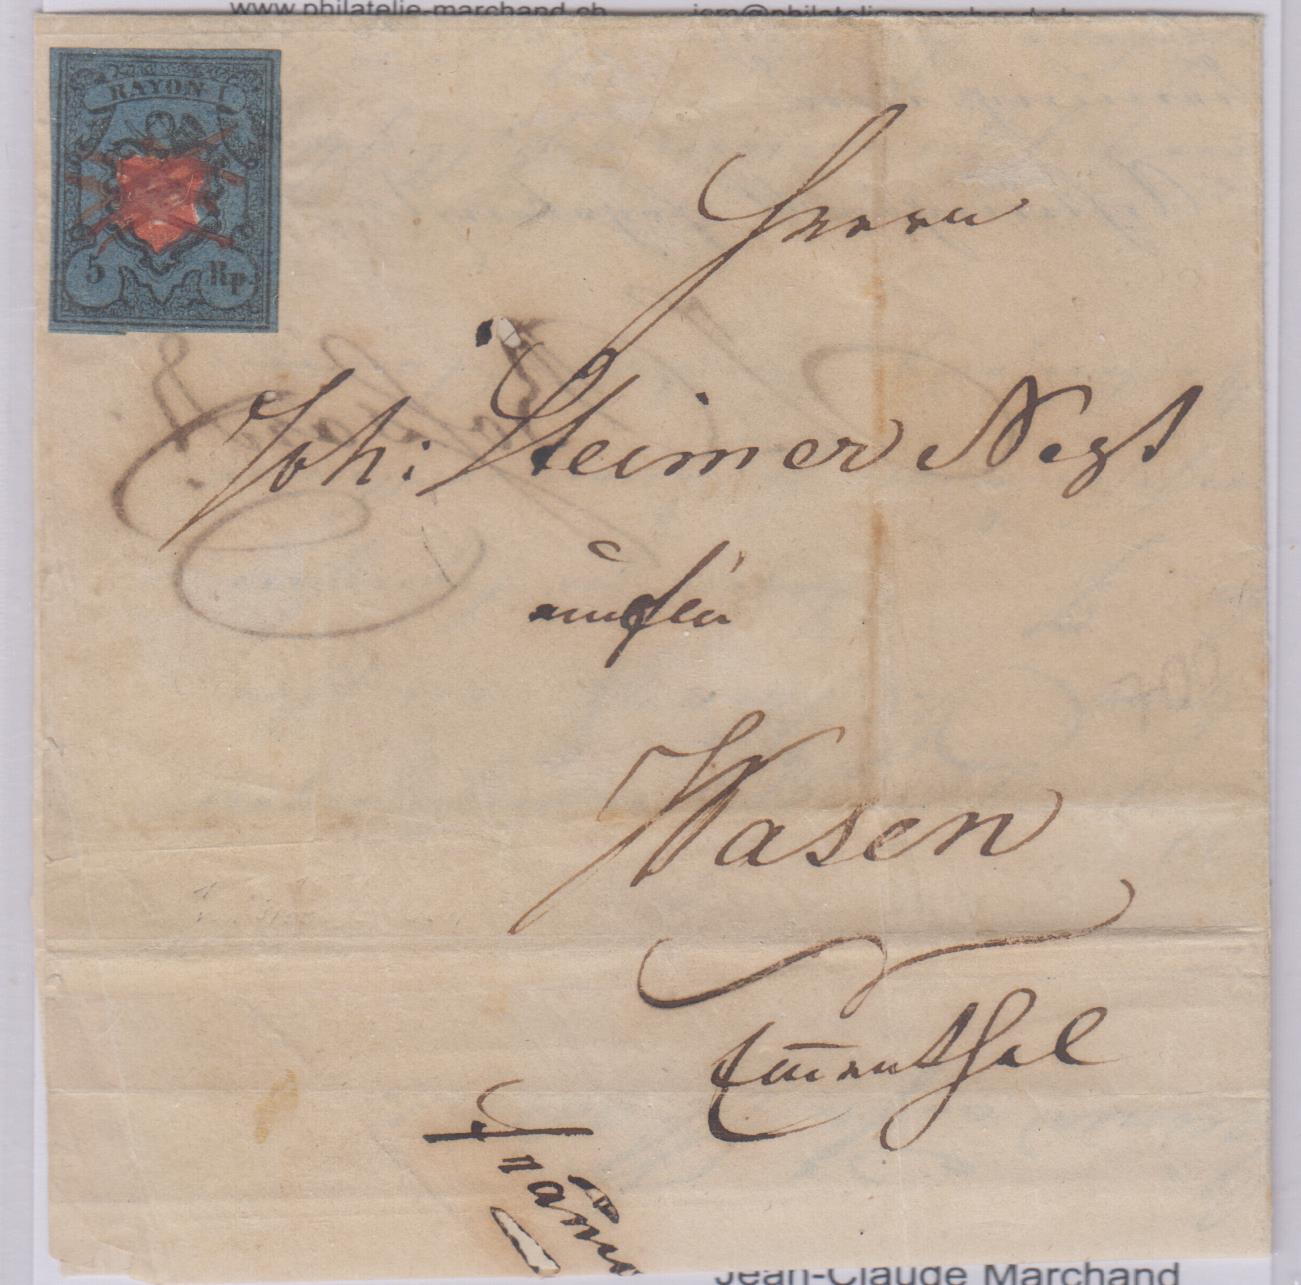 www.philatelie-marchand.ch jcm@philatelie-marchand.ch
RAYON I
5 Rp.
Herrn
Joh: Steimer Negt
Wasen
Ementhal
franco
Jean-Claude Marchand